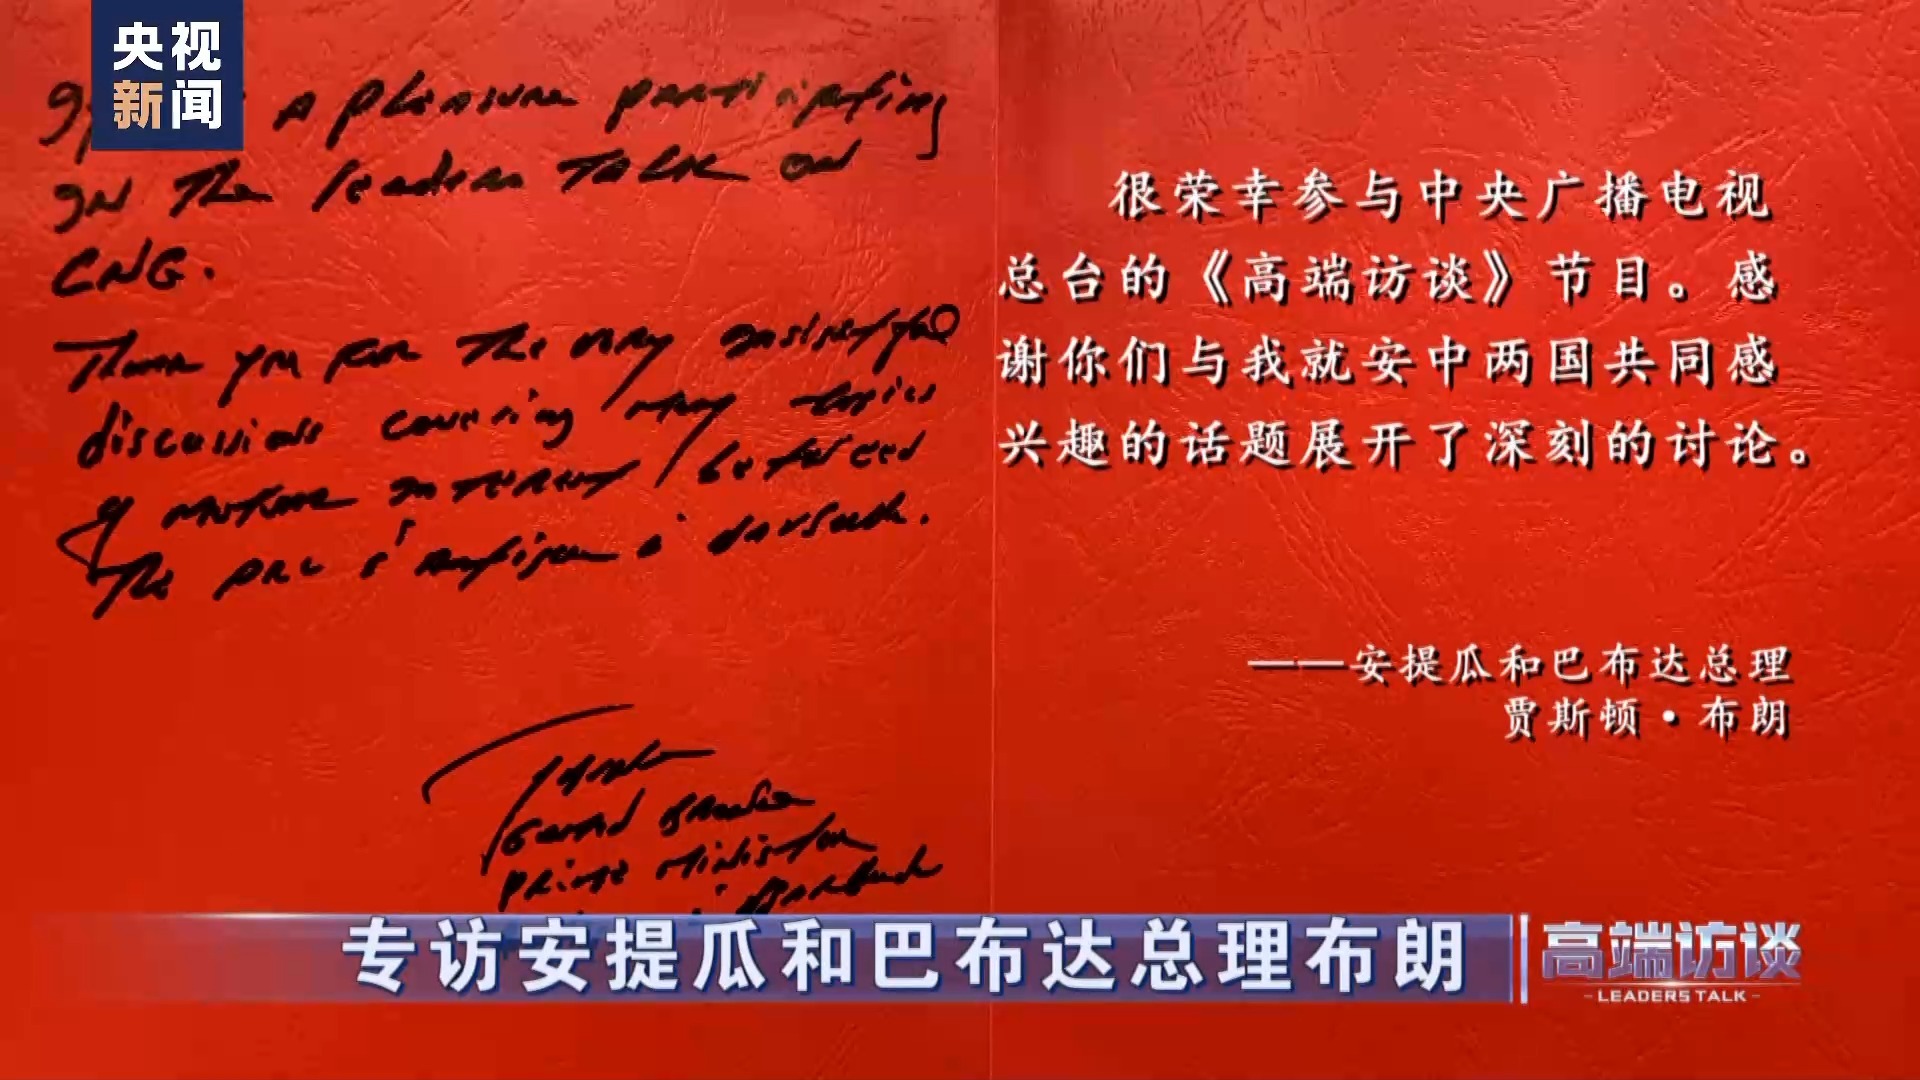 央视
新闻
a pleasure participating
in the leaders Talk on
CNG.
Thank you for the very insightful
discussions covering many topics
of mutual interest between
The PRC
很荣幸参与中央广播电视
总台的《高端访谈》节目。感
谢你们与我就安中两国共同感
兴趣的话题展开了深刻的讨论。
——安提瓜和巴布达总理
贾斯顿·布朗
Prime Minister
专访安提瓜和巴布达总理布朗
高端访谈
LEADERS TALK